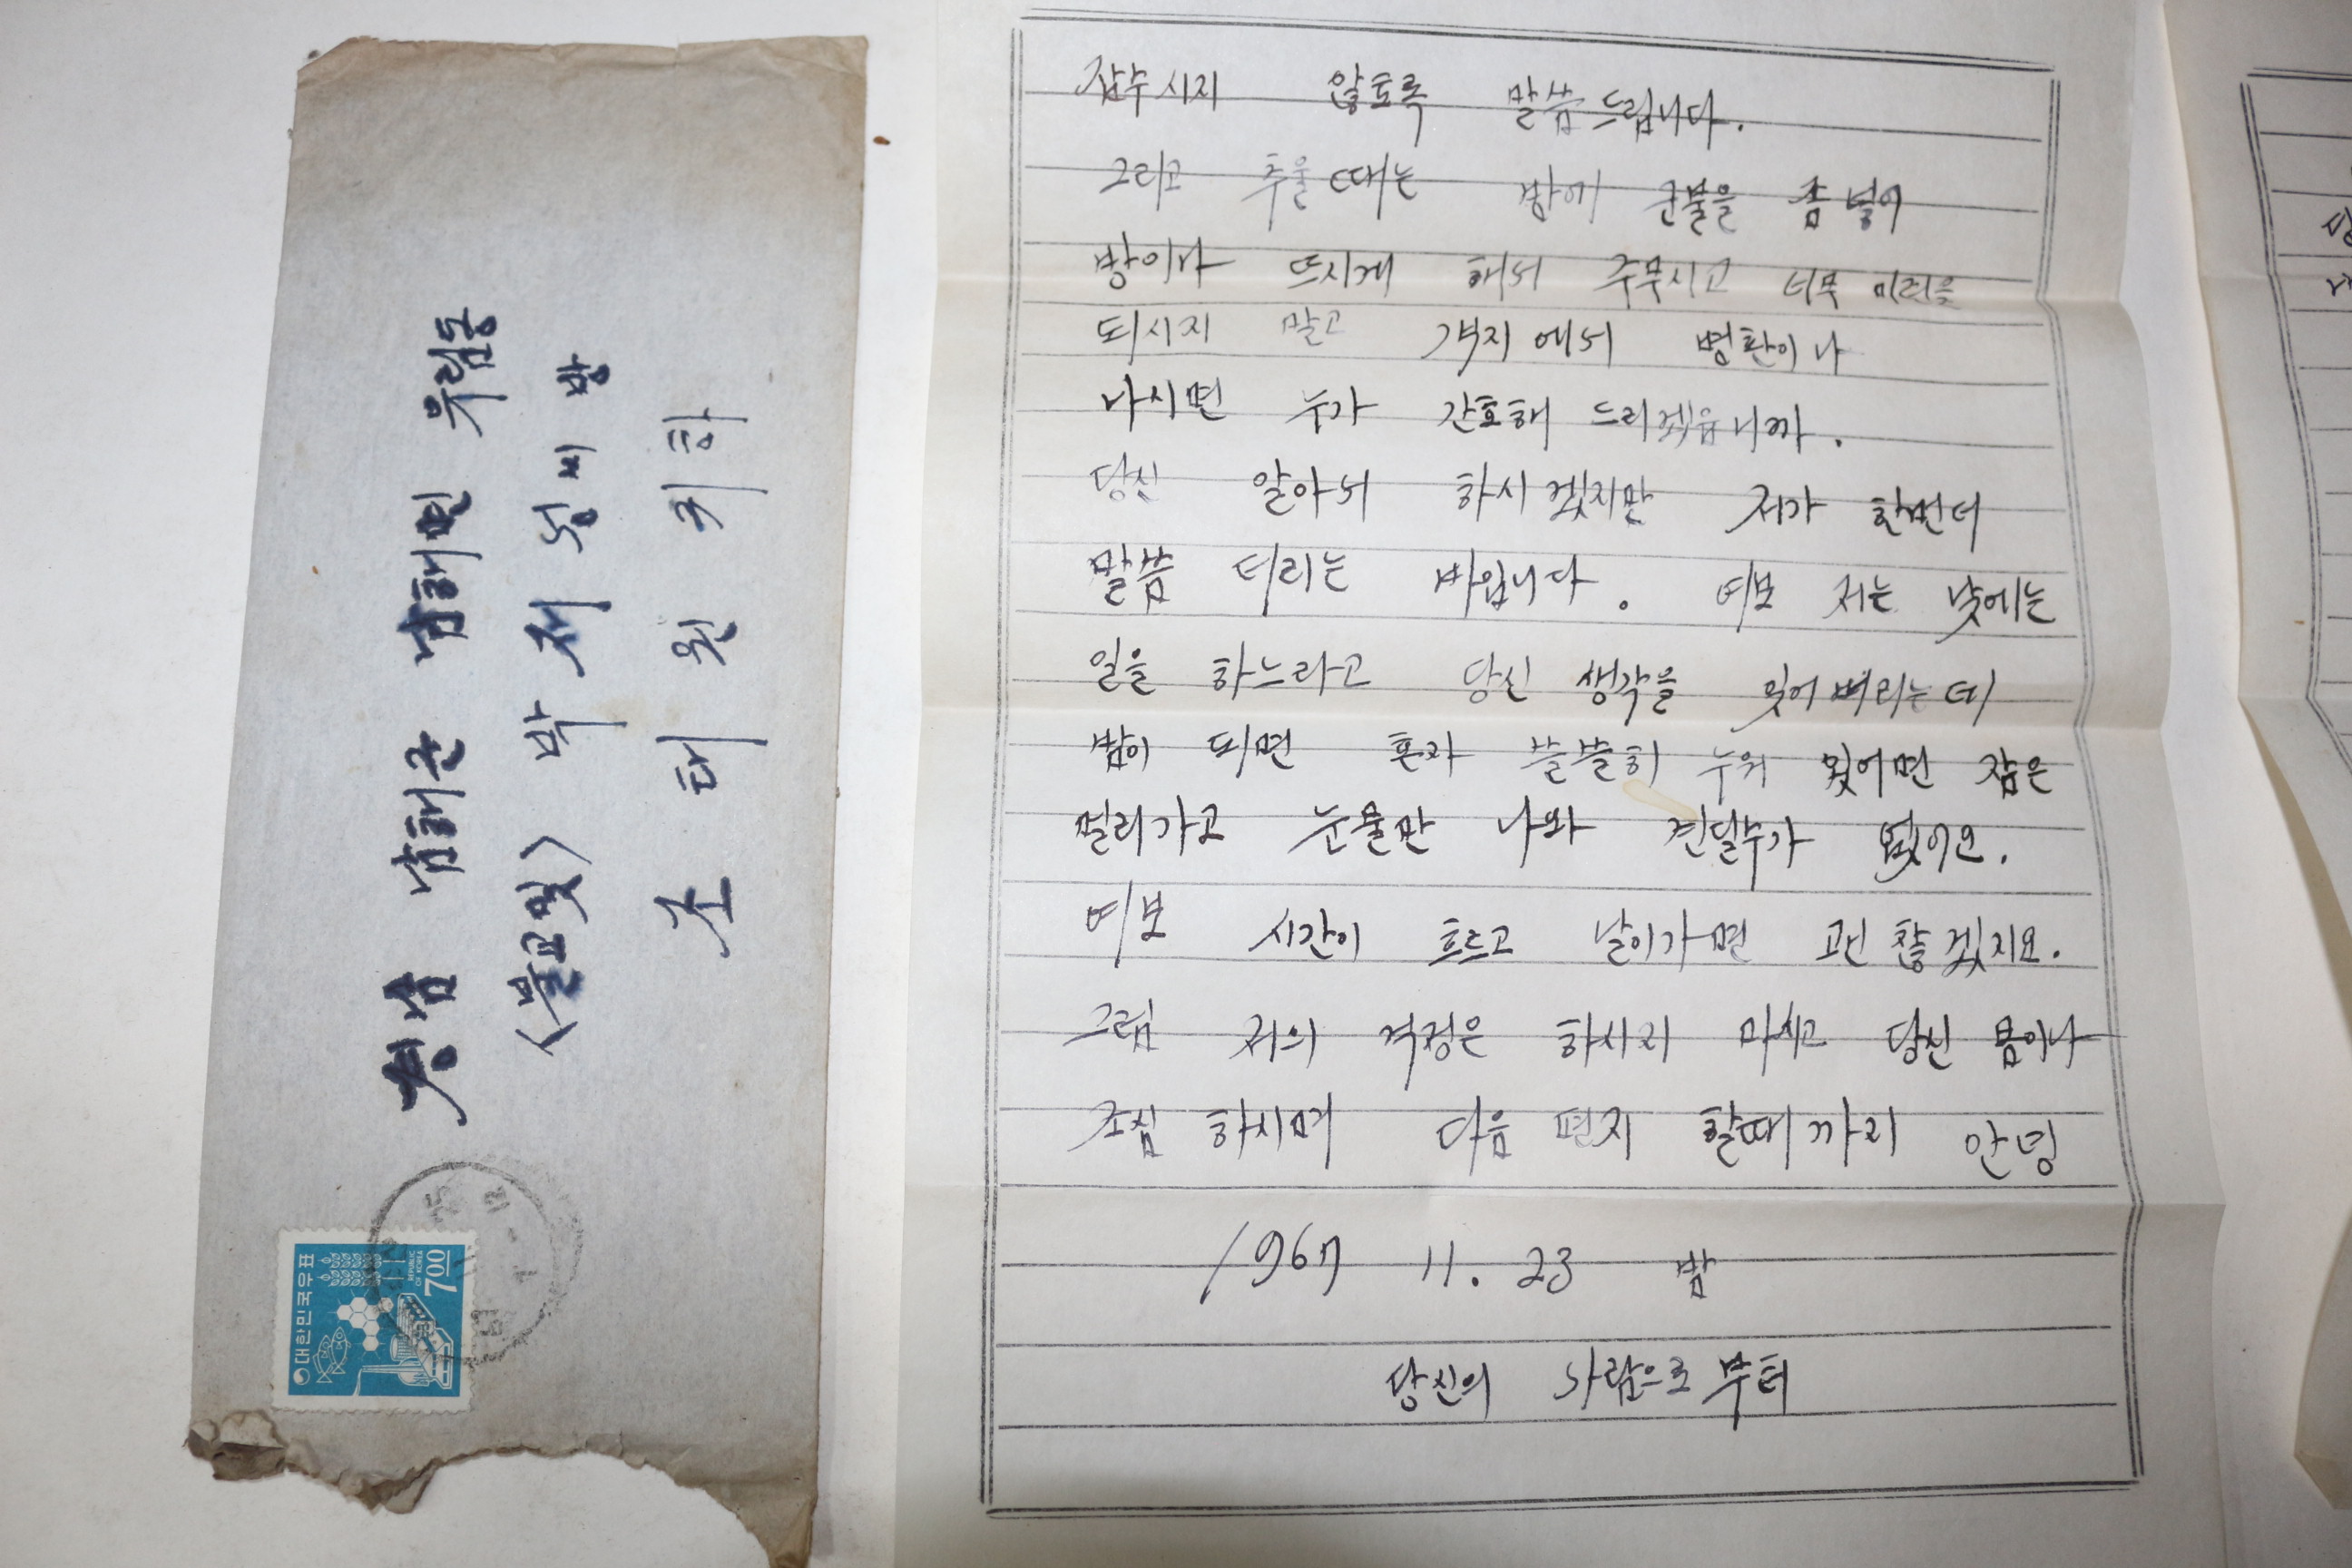 경남 남해군 남해면 유림동
<불교밑> 박재성씨 방
조태원 귀하
대한민국우표
REPUBLIC OF KOREA
700
잡수시지 않토록 말씀드립니다.
그리고 추울때는 방에 군불을 좀 넣어
방이나 뜨시게 해서 주무시고 너무 미련을
되시지 말고 객지에서 병환이나
나시면 누가 간호해 드리겠읍니까.
당신 알아서 하시겠지만 저가 한번더
말씀 더리는 바입니다. 여보 저는 낮에는
일을 하느라고 당신 생각을 잊어버리는데
밤이 되면 혼자 쓸쓸히 누워 있어면 잠은
멀리가고 눈물만 나와 견딜수가 없어요.
여보 시간이 흐르고 날이가면 괜찮겠지요.
그럼 저의 걱정은 하시지 마시고 당신 몸이나
조심 하시며 다음 편지 할때까지 안녕
1967 11. 23 밤
당신의 사람으로부터